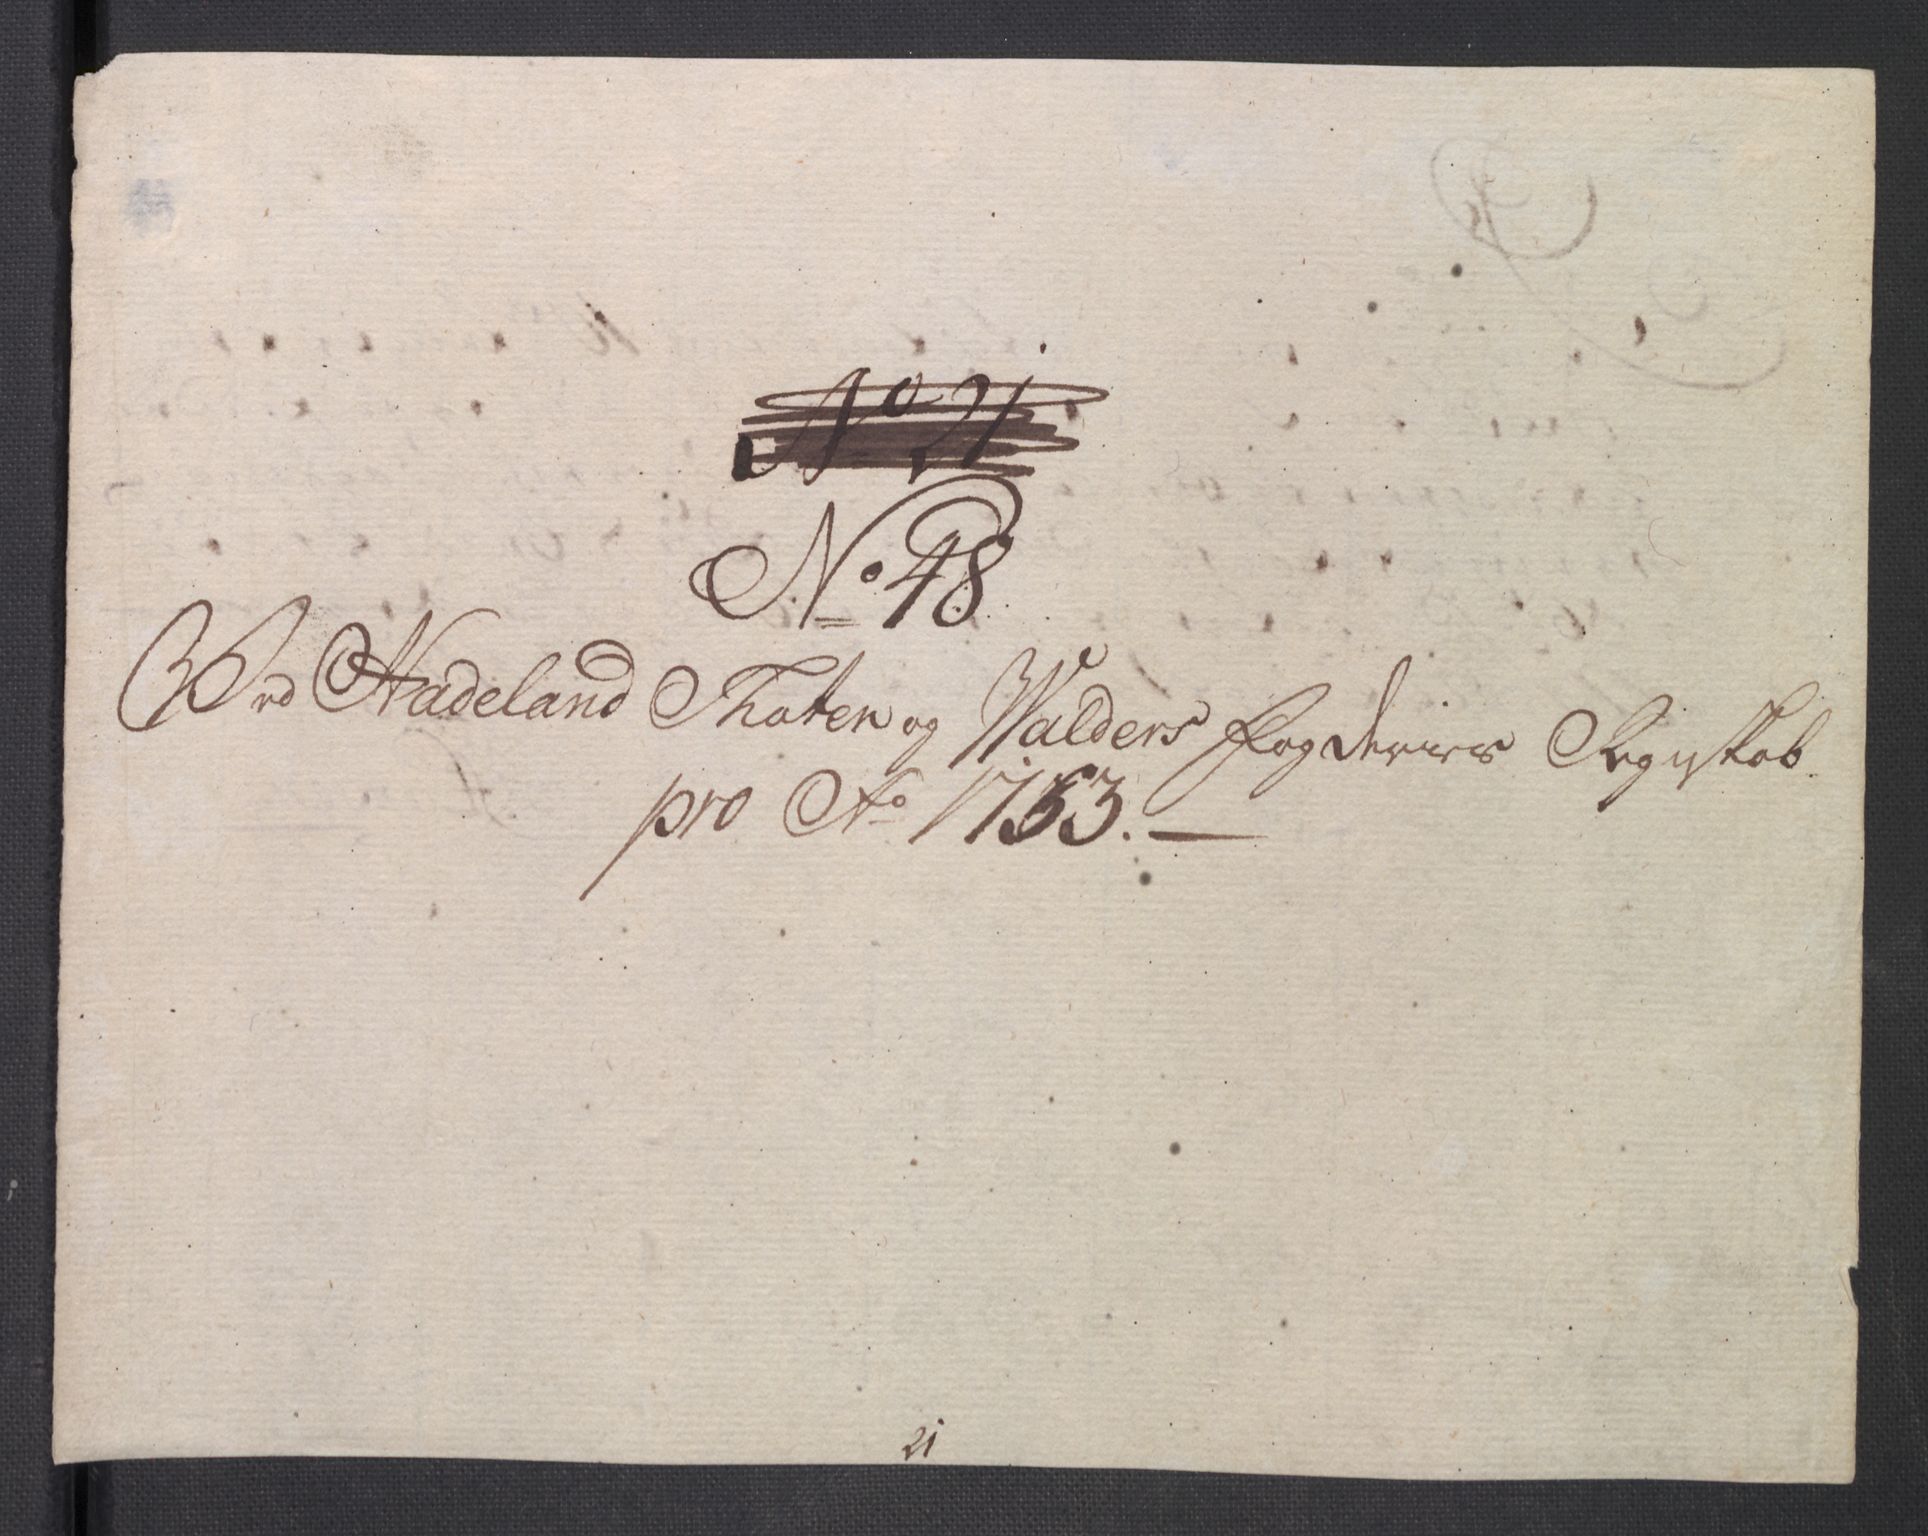 No 21
No. 48
Ved Hadeland Thoten og Walders Fogderies Regnskab
pro Ao 1753.
21